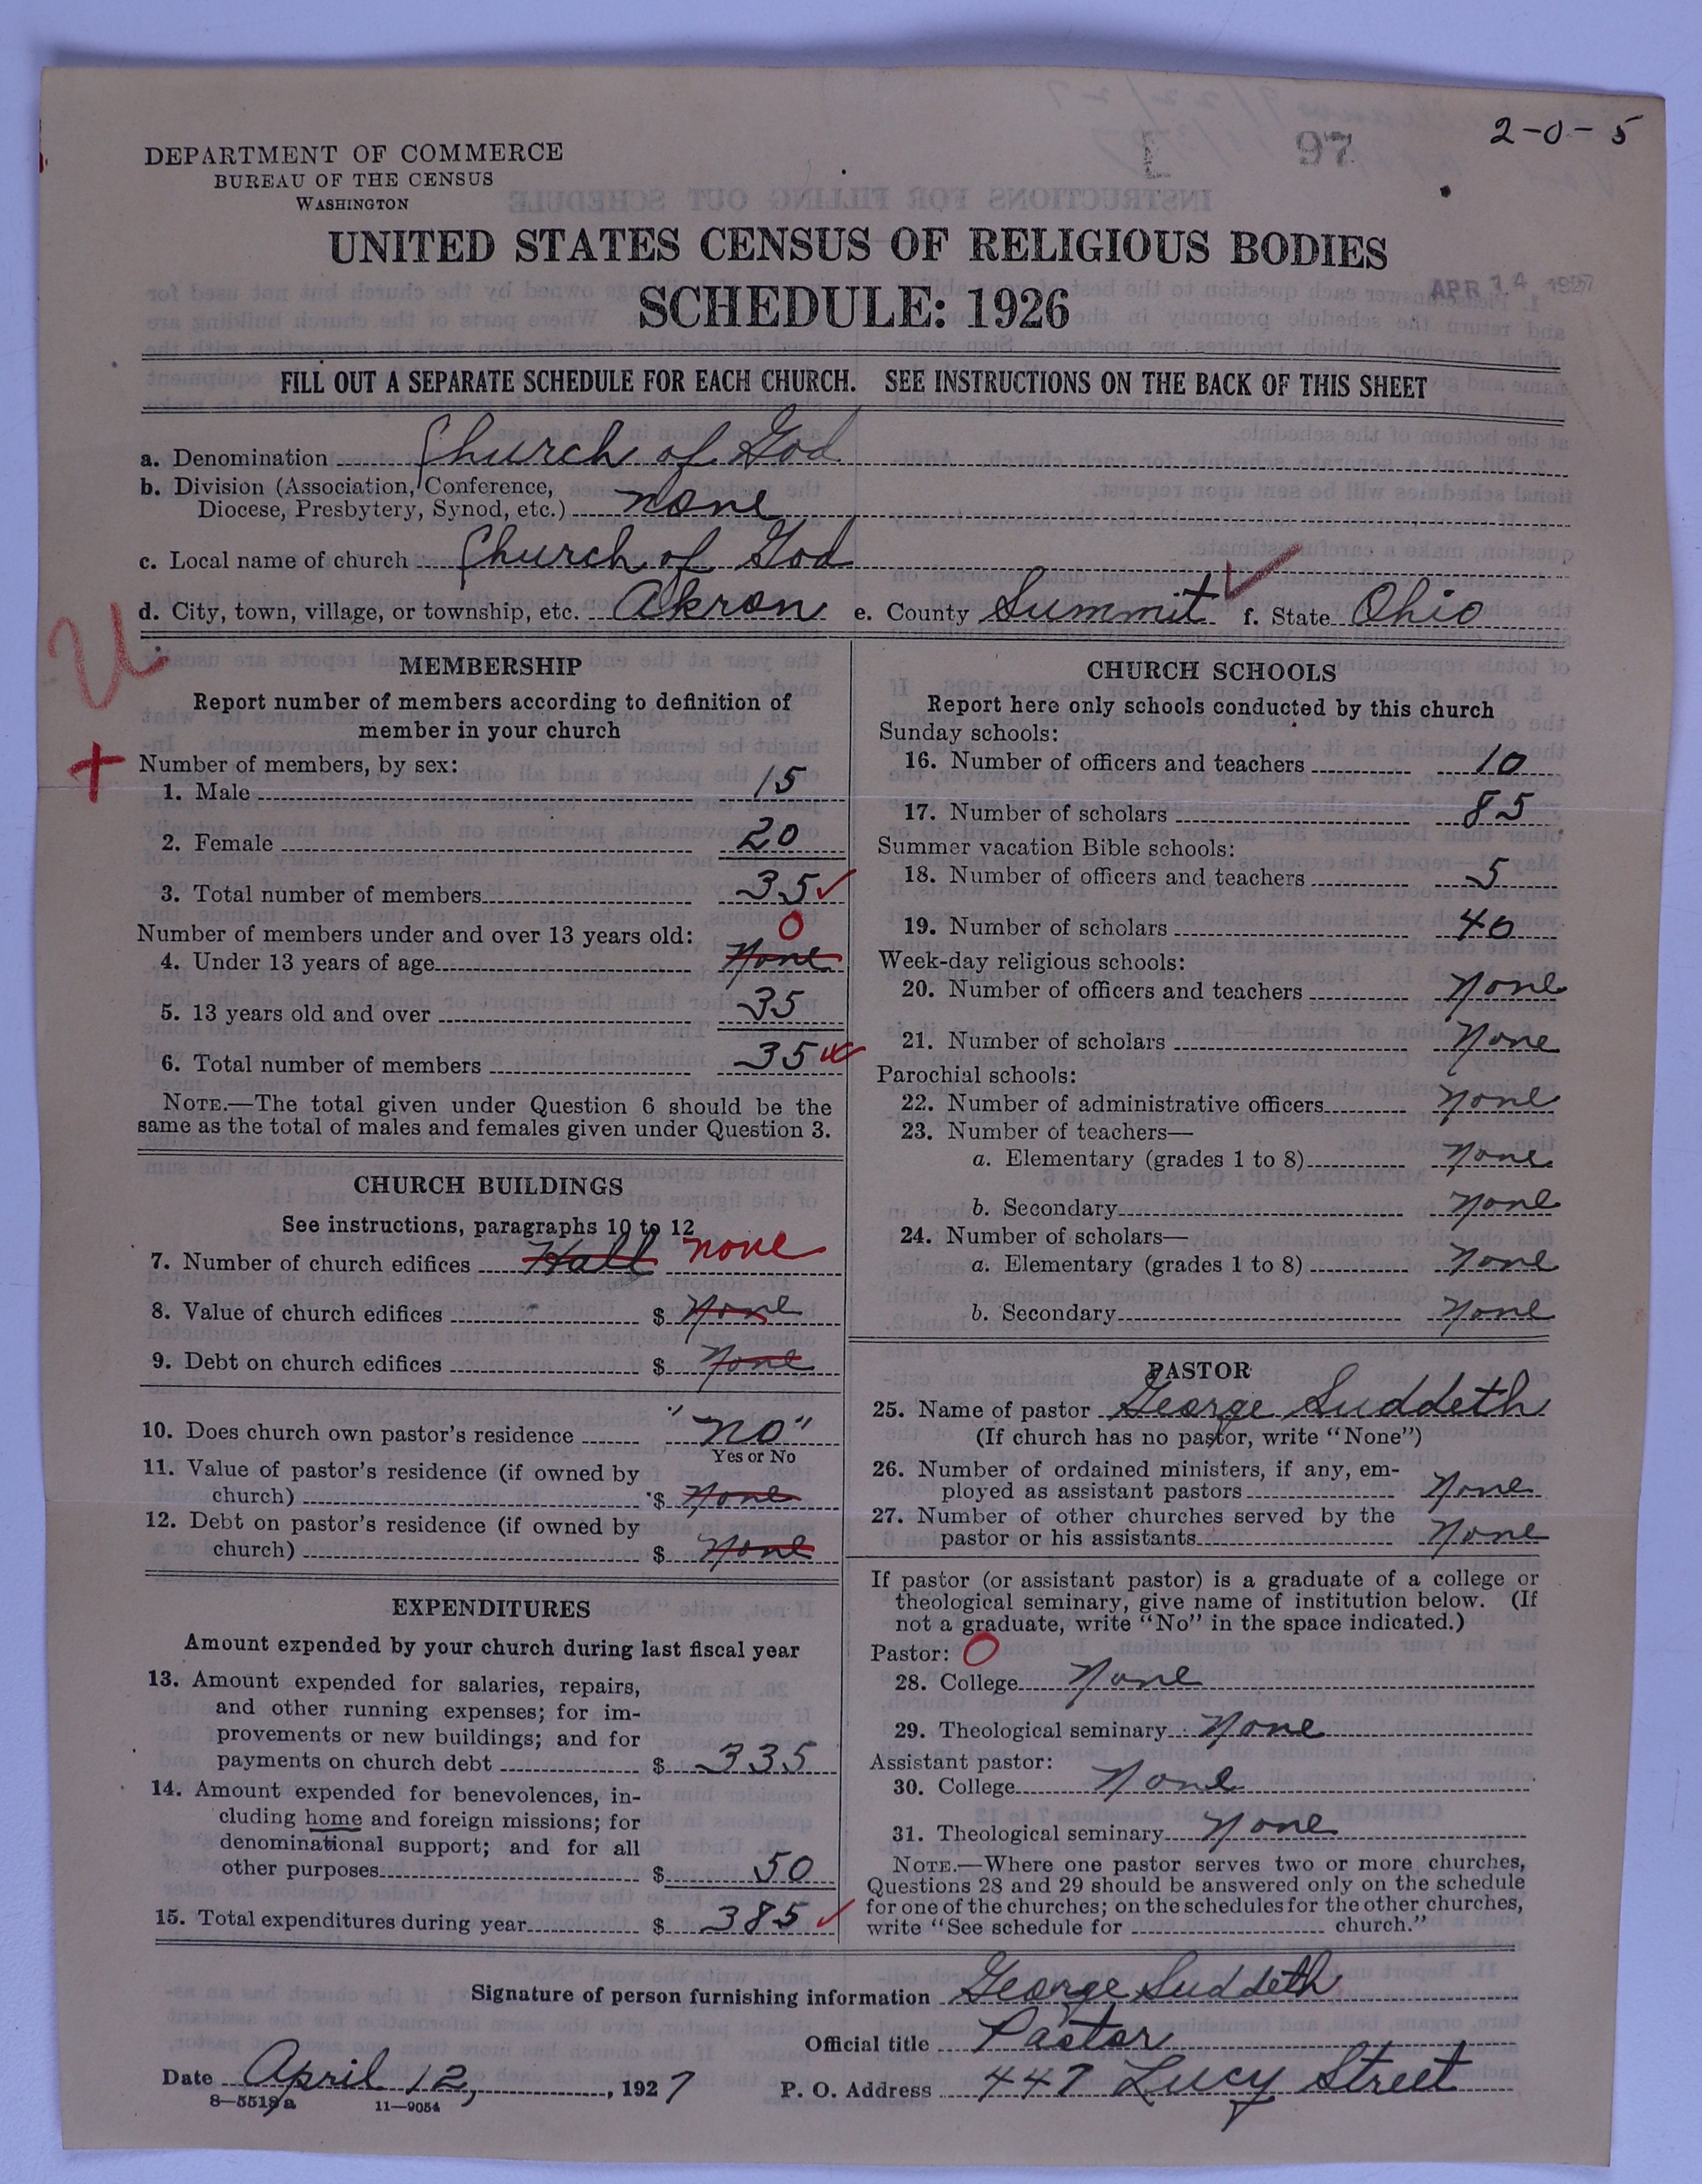 2-0-5
L 97
DEPARTMENT OF COMMERCE
BUREAU OF THE CENSUS
WASHINGTON
UNITED STATES CENSUS OF RELIGIOUS BODIES
APR 14 1927
SCHEDULE: 1926
FILL OUT A SEPARATE SCHEDULE FOR EACH CHURCH. SEE INSTRUCTIONS ON THE BACK OF THIS SHEET
a. Denomination Church of God
b. Division (Association, Conference,
Diocese, Presbytery, Synod, etc.) none
c. Local name of church Church of God
d. City, town, village, or township, etc. Akron e. County Summit ✓ f. State Ohio
U
+
MEMBERSHIP
Report number of members according to definition of
member in your church
Number of members, by sex:
1. Male 15
2. Female 20
3. Total number of members 35 ✓
Number of members under and over 13 years old: 0
4. Under 13 years of age None
5. 13 years old and over 35
6. Total number of members 35
NOTE.—The total given under Question 6 should be the
same as the total of males and females given under Question 3.
CHURCH BUILDINGS
See instructions, paragraphs 10 to 12
7. Number of church edifices Hall none
8. Value of church edifices $ None
9. Debt on church edifices $ None
10. Does church own pastor's residence "no"
Yes or No
11. Value of pastor's residence (if owned by
church) $ None
12. Debt on pastor's residence (if owned by
church) $ None
EXPENDITURES
Amount expended by your church during last fiscal year
13. Amount expended for salaries, repairs,
and other running expenses; for im-
provements or new buildings; and for
payments on church debt $ 335
14. Amount expended for benevolences, in-
cluding home and foreign missions; for
denominational support; and for all
other purposes $ 50
15. Total expenditures during year $ 385 ✓
CHURCH SCHOOLS
Report here only schools conducted by this church
Sunday schools:
16. Number of officers and teachers 10
17. Number of scholars 85
Summer vacation Bible schools:
18. Number of officers and teachers 5
19. Number of scholars 40
Week-day religious schools:
20. Number of officers and teachers None
21. Number of scholars None
Parochial schools:
22. Number of administrative officers None
23. Number of teachers—
a. Elementary (grades 1 to 8) None
b. Secondary None
24. Number of scholars—
a. Elementary (grades 1 to 8) None
b. Secondary None
PASTOR
25. Name of pastor George Suddeth
(If church has no pastor, write "None")
26. Number of ordained ministers, if any, em-
ployed as assistant pastors None
27. Number of other churches served by the
pastor or his assistants None
If pastor (or assistant pastor) is a graduate of a college or
theological seminary, give name of institution below. (If
not a graduate, write "No" in the space indicated.)
Pastor: O
28. College None
29. Theological seminary None
Assistant pastor:
30. College None
31. Theological seminary None
NOTE.—Where one pastor serves two or more churches,
Questions 28 and 29 should be answered only on the schedule
for one of the churches; on the schedules for the other churches,
write "See schedule for church."
Signature of person furnishing information George Suddeth
Official title Pastor
Date April 12, 1927 P. O. Address 447 Lucy Street
8—5518a 11—9054